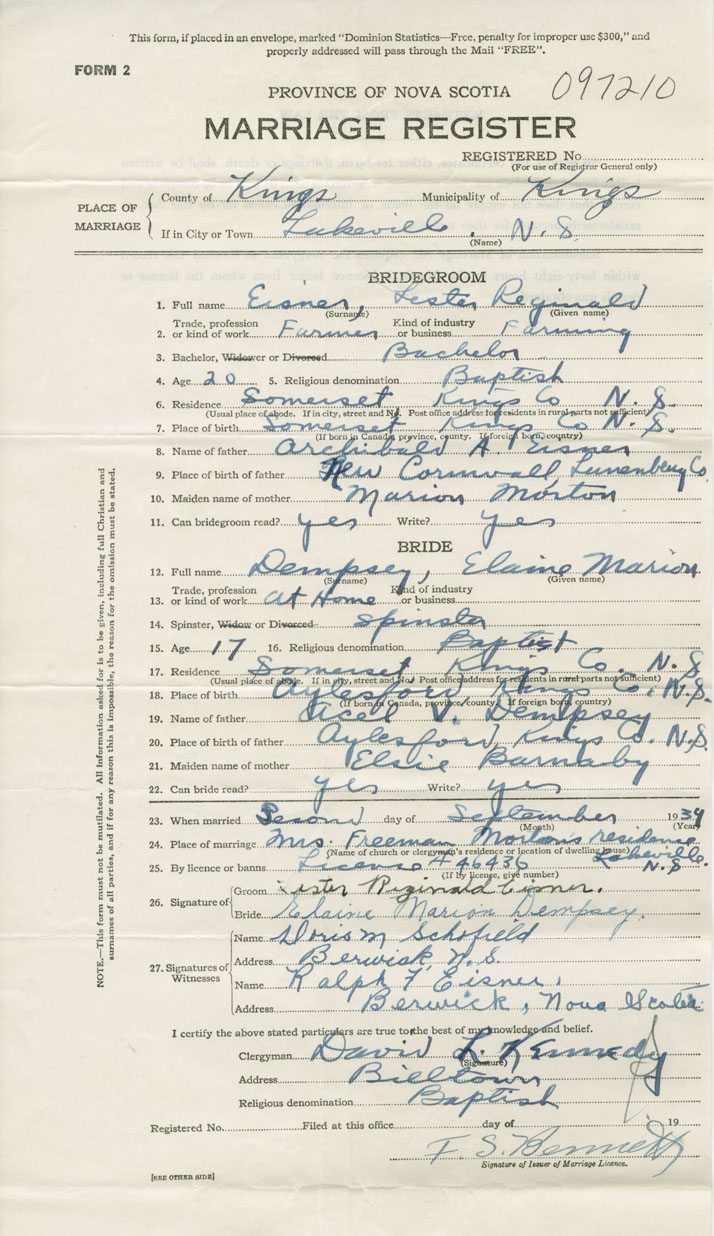 This form, if placed in an envelope, marked "Dominion Statistics—Free, penalty for improper use $300," and
properly addressed will pass through the Mail "FREE".
FORM 2
PROVINCE OF NOVA SCOTIA 097210
MARRIAGE REGISTER
REGISTERED No.
(For use of Registrar General only)
PLACE OF MARRIAGE
County of Kings Municipality of Kings
If in City or Town Lakeville, N.S.
(Name)
BRIDEGROOM
1. Full name Eisner, Lester Reginald
(Surname) (Given name)
2. Trade, profession or kind of work Farmer Kind of industry or business Farming
3. Bachelor, Widower or Divorced Bachelor
4. Age 20 5. Religious denomination Baptist
6. Residence Somerset Kings Co N.S.
(Usual place of abode. If in city, street and No. Post office address for residents in rural parts not sufficient)
7. Place of birth Somerset Kings Co N.S.
(If born in Canada, province, county. If foreign born, country)
8. Name of father Archibald A. Eisner
9. Place of birth of father New Cornwall, Lunenburg Co.
10. Maiden name of mother Marion Morton
11. Can bridegroom read? yes Write? yes
BRIDE
12. Full name Dempsey, Elaine Marion
(Surname) (Given name)
13. Trade, profession or kind of work At Home Kind of industry or business
14. Spinster, Widow or Divorced Spinster
15. Age 17 16. Religious denomination Baptist
17. Residence Somerset, Kings Co. N.S.
(Usual place of abode. If in city, street and No. Post office address for residents in rural parts not sufficient)
18. Place of birth Aylesford, Kings Co. N.S.
(If born in Canada, province, county. If foreign born, country)
19. Name of father Acel V. Dempsey
20. Place of birth of father Aylesford, Kings Co. N.S.
21. Maiden name of mother Elsie Barnaby
22. Can bride read? yes Write? yes
23. When married Second day of September 1939
(Month) (Year)
24. Place of marriage Mrs. Freeman Morton's residence
(Name of church or clergyman's residence or location of dwelling house) Lakeville
25. By licence or banns License # 46436 N.S
(If by licence, give number)
26. Signature of
Groom Lester Reginald Eisner.
Bride Elaine Marion Dempsey.
27. Signatures of Witnesses
Name Doris M Schofield
Address Berwick, N.S.
Name Ralph F. Eisner,
Address Berwick, Nova Scotia
I certify the above stated particulars are true to the best of my knowledge and belief.
Clergyman David L. Kennedy
(Signature)
Address Billtown
Religious denomination Baptist
Registered No. Filed at this office day of 19
F. S. Bennett
Signature of Issuer of Marriage Licence.
[SEE OTHER SIDE]
NOTE.—This form must not be mutilated. All information asked for is to be given, including full Christian and
surnames of all parties, and if for any reason this is impossible, the reason for the omission must be stated.